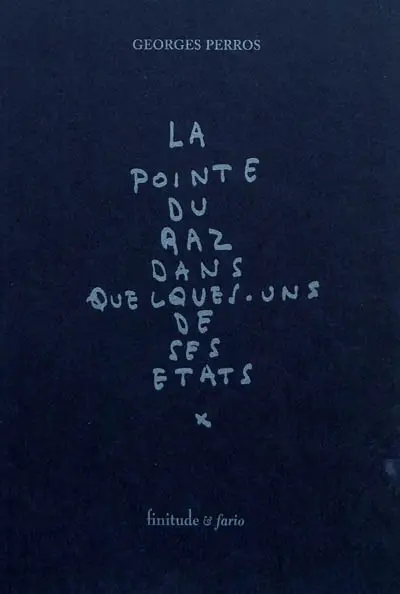 GEORGES PERROS
LA
POINTE
DU
RAZ
DANS
QUELQUES-UNS
DE
SES
ETATS
x
finitude & fario